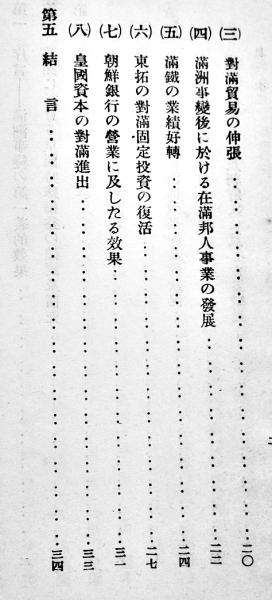 (三) 對滿貿易の伸張……二〇
(四) 滿洲事變後に於ける在滿邦人事業の發展……二二
(五) 滿鐵の業績好轉……二四
(六) 東拓の對滿固定投資の復活……二七
(七) 朝鮮銀行の營業に及したる效果……三一
(八) 皇國資本の對滿進出……三三
第五 結言……三四